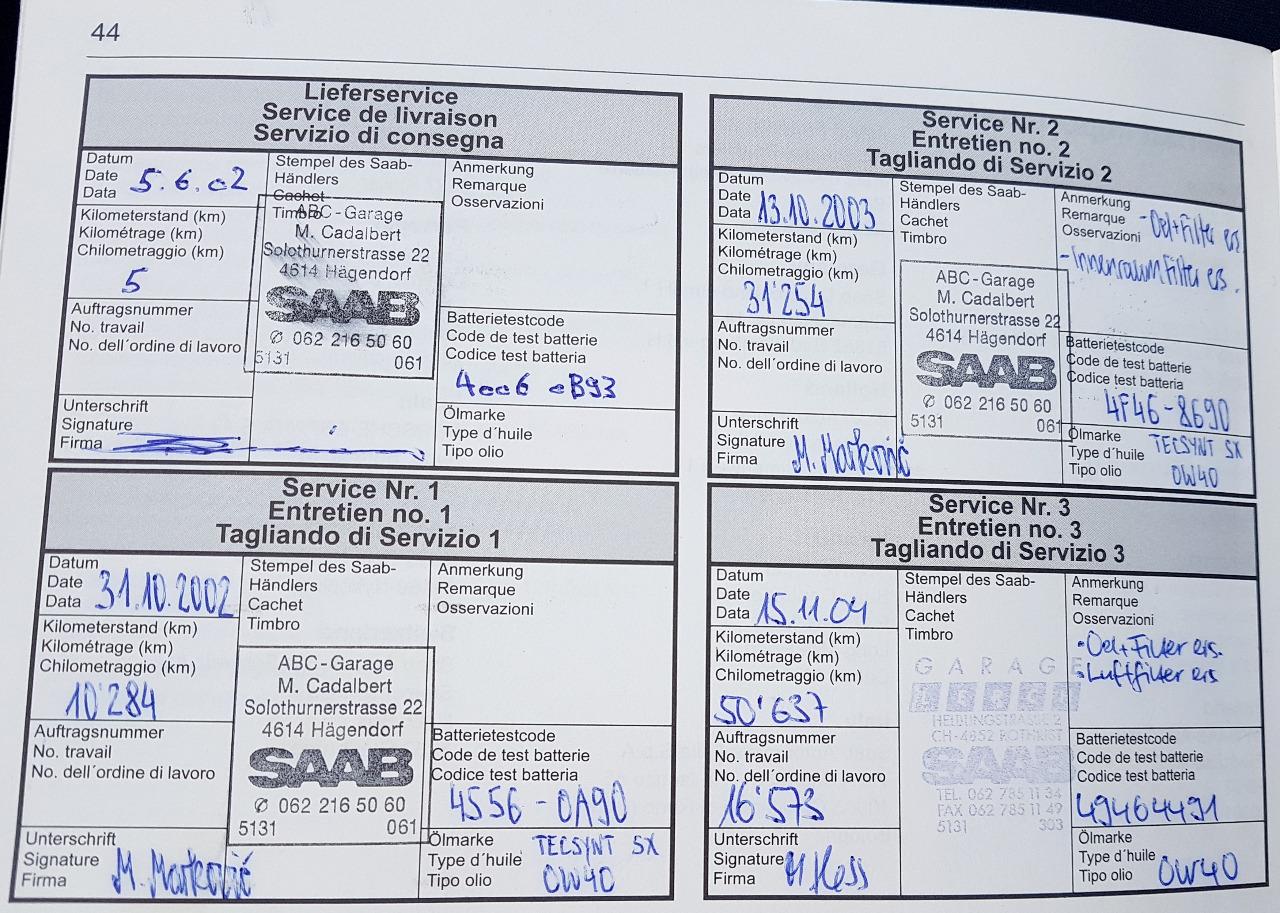 44
Lieferservice
Service de livraison
Servizio di consegna
Datum
Date
Data 5.6.02
Stempel des Saab-
Händlers
Cachet
Timbro
Anmerkung
Remarque
Osservazioni
Kilometerstand (km)
Kilométrage (km)
Chilometraggio (km)
5
ABC-Garage
M. Cadalbert
Solothurnerstrasse 22
4614 Hägendorf
SAAB
✆ 062 216 50 60
5131 061
Auftragsnummer
No. travail
No. dell´ordine di lavoro
Batterietestcode
Code de test batterie
Codice test batteria
Unterschrift
Signature
Firma
Ölmarke
Type d´huile
Tipo olio
Service Nr. 1
Entretien no. 1
Tagliando di Servizio 1
Datum
Date
Data 31.10.2002
Stempel des Saab-
Händlers
Cachet
Timbro
Anmerkung
Remarque
Osservazioni
Kilometerstand (km)
Kilométrage (km)
Chilometraggio (km)
10'284
ABC-Garage
M. Cadalbert
Solothurnerstrasse 22
4614 Hägendorf
SAAB
✆ 062 216 50 60
5131 061
Auftragsnummer
No. travail
No. dell´ordine di lavoro
Batterietestcode
Code de test batterie
Codice test batteria
4556-0A90
Unterschrift
Signature
Firma
M. Marković
Ölmarke
Type d´huile
Tipo olio
TECSYNT SX
0W40
Service Nr. 2
Entretien no. 2
Tagliando di Servizio 2
Datum
Date
Data 13.10.2003
Stempel des Saab-
Händlers
Cachet
Timbro
Anmerkung
Remarque
Osservazioni
- Oel+Filter ers.
- Innenraumfilter ers.
Kilometerstand (km)
Kilométrage (km)
Chilometraggio (km)
31'254
ABC-Garage
M. Cadalbert
Solothurnerstrasse 22
4614 Hägendorf
SAAB
✆ 062 216 50 60
5131 061
Auftragsnummer
No. travail
No. dell´ordine di lavoro
Batterietestcode
Code de test batterie
Codice test batteria
4F46-8690
Unterschrift
Signature
Firma
M. Marković
Ölmarke
Type d´huile
Tipo olio
TECSYNT SX
0W40
Service Nr. 3
Entretien no. 3
Tagliando di Servizio 3
Datum
Date
Data 15.11.04
Stempel des Saab-
Händlers
Cachet
Timbro
Anmerkung
Remarque
Osservazioni
- Oel+Filter ers.
- Luftfilter ers
Kilometerstand (km)
Kilométrage (km)
Chilometraggio (km)
50'637
GARAGE
CH-4852 ROTHRIST
SAAB
TEL. 062 785 11 34
FAX 062 785 11 49
5131 303
Auftragsnummer
No. travail
No. dell´ordine di lavoro
16'573
Batterietestcode
Code de test batterie
Codice test batteria
49464491
Unterschrift
Signature
Firma
Ölmarke
Type d´huile
Tipo olio
0W40